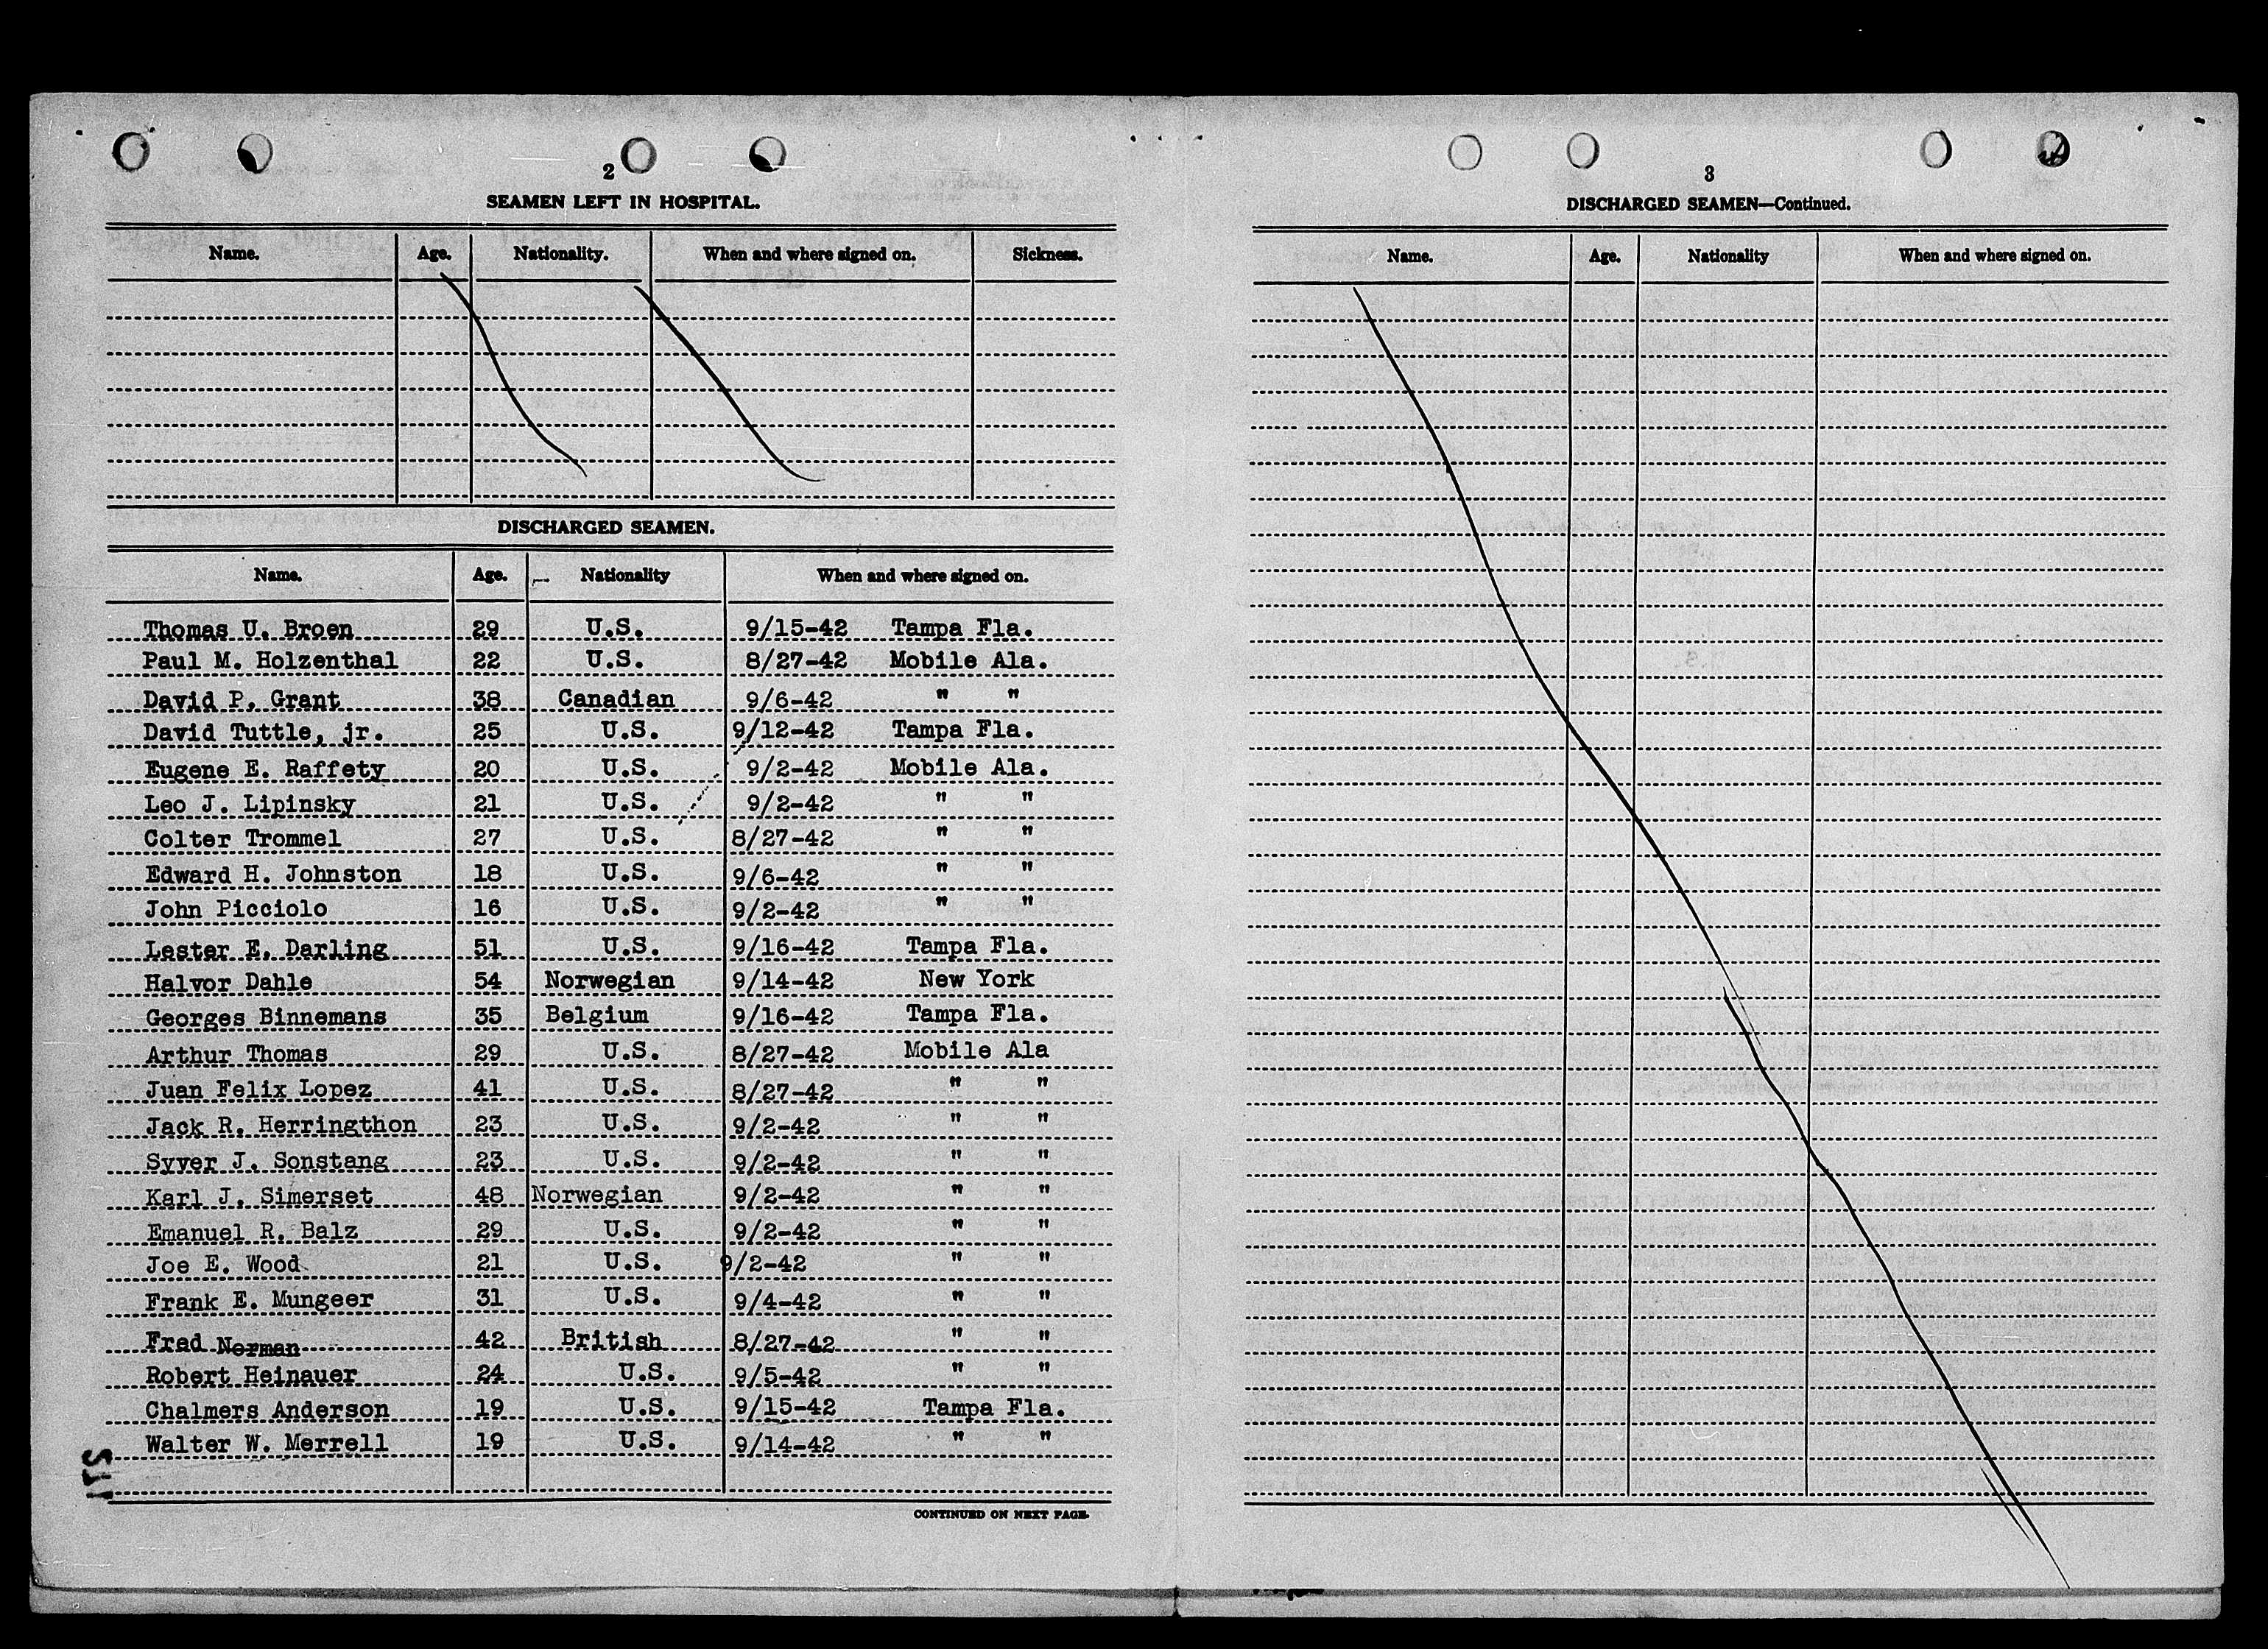 2
SEAMEN LEFT IN HOSPITAL.
Name. Age. Nationality. When and where signed on. Sickness.
DISCHARGED SEAMEN.
Name. Age. Nationality When and where signed on.
Thomas U. Broen 29 U.S. 9/15-42 Tampa Fla.
Paul M. Holzenthal 22 U.S. 8/27-42 Mobile Ala.
David P. Grant 38 Canadian 9/6-42 " "
David Tuttle, jr. 25 U.S. 9/12-42 Tampa Fla.
Eugene E. Raffety 20 U.S. 9/2-42 Mobile Ala.
Leo J. Lipinsky 21 U.S. 9/2-42 " "
Colter Trommel 27 U.S. 8/27-42 " "
Edward H. Johnston 18 U.S. 9/6-42 " "
John Picciolo 16 U.S. 9/2-42 " "
Lester E. Darling 51 U.S. 9/16-42 Tampa Fla.
Halvor Dahle 54 Norwegian 9/14-42 New York
Georges Binnemans 35 Belgium 9/16-42 Tampa Fla.
Arthur Thomas 29 U.S. 8/27-42 Mobile Ala
Juan Felix Lopez 41 U.S. 8/27-42 " "
Jack R. Herringthon 23 U.S. 9/2-42 " "
Syver J. Sonstang 23 U.S. 9/2-42 " "
Karl J. Simerset 48 Norwegian 9/2-42 " "
Emanuel R. Balz 29 U.S. 9/2-42 " "
Joe E. Wood 21 U.S. 9/2-42 " "
Frank E. Mungeer 31 U.S. 9/4-42 " "
Fred Norman 42 British 8/27-42 " "
Robert Heinauer 24 U.S. 9/5-42 " "
Chalmers Anderson 19 U.S. 9/15-42 Tampa Fla.
Walter W. Merrell 19 U.S. 9/14-42 " "
CONTINUED ON NEXT PAGE.
3
DISCHARGED SEAMEN—Continued.
Name. Age. Nationality When and where signed on.